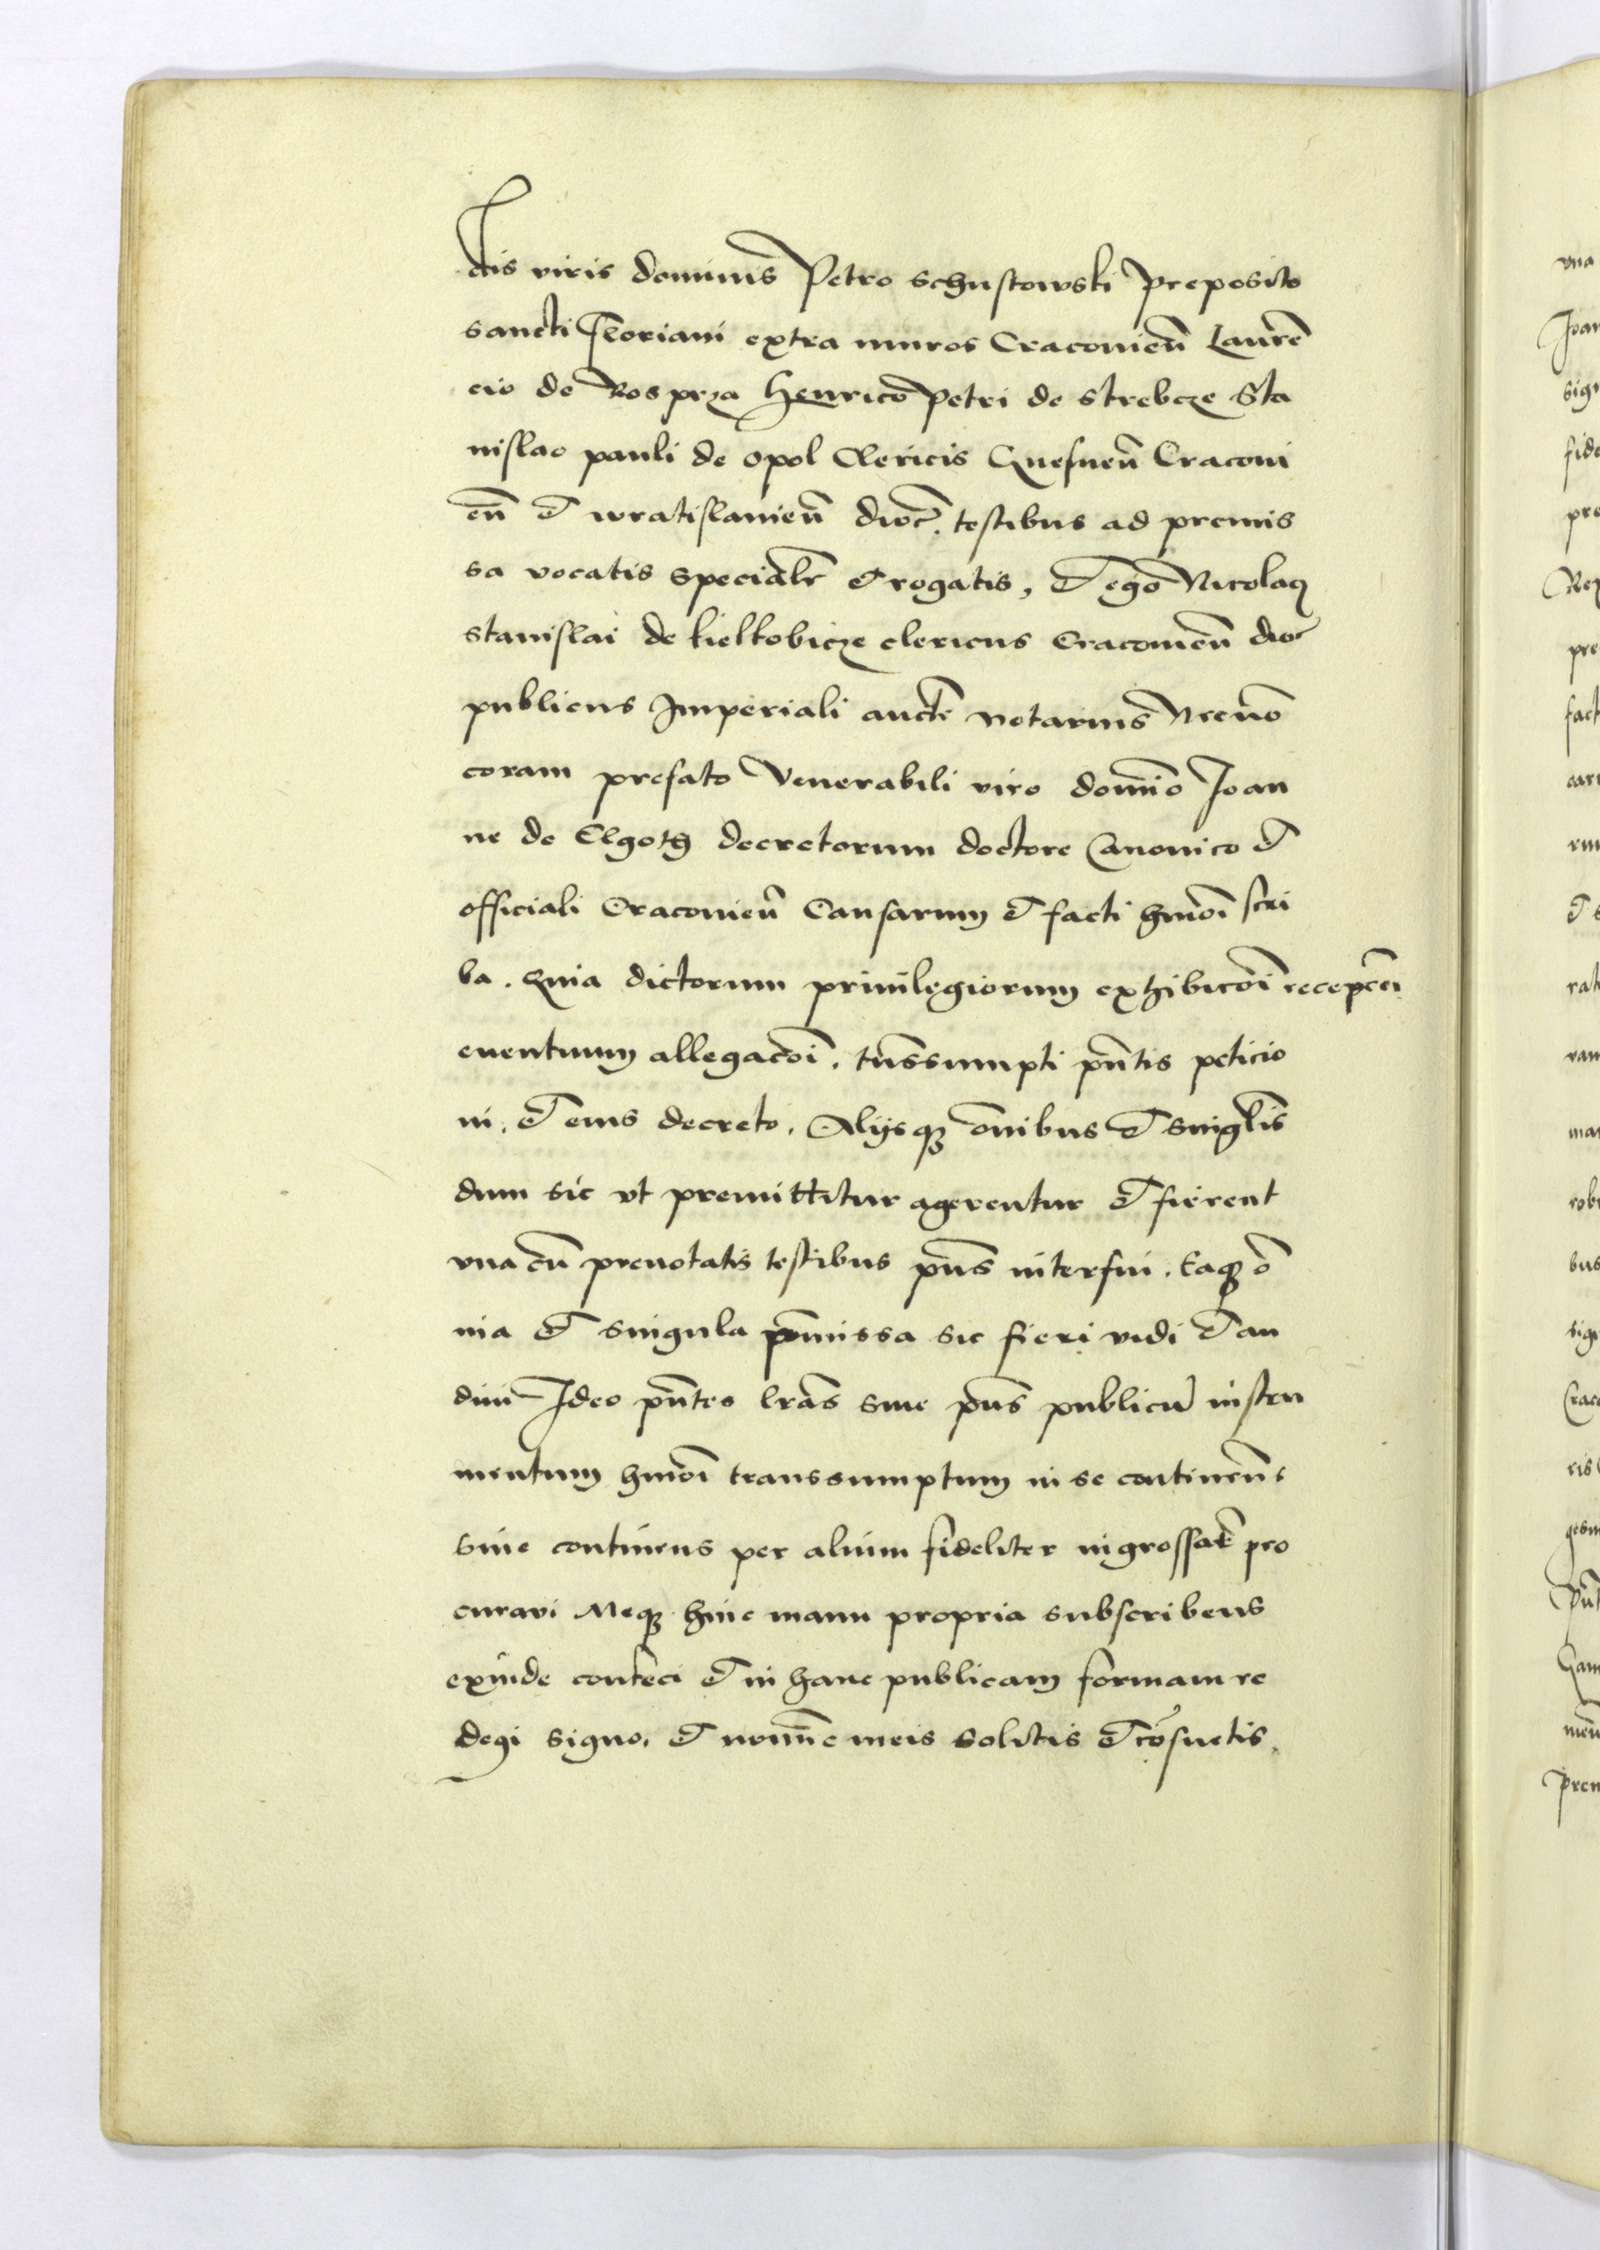 ctis viris dominis Petro Schustowski Preposito
sancti Floriani extra muros Craconień Lauren̄
cio de Rosprza Henrico Petri de Strebcze Sta
nislao pauli de opol Clericis Gnesneń Craconi
eń et wratislauień dioc̄. testibus ad premis
sa vocatis specialr̄ et rogatis, Et ego Nicolaus
stanislai de kielkobicze clericus Craconień dioc̄
publicus Imperiali auctē notarius Necnō
coram prefato Venerabili viro domīo Joan
ne de Elgoth decretorum doctore Canonico et
officiali Craconień Causarum et facti hmōi scri
ba. Quia dictorum priuilegiorum exhibicōi recepcōi
euentuum allegacōi. trāssumpti pn̄tis peticio
ni. et eius decreto. Alijsqꝫ om̄ibus et singl̄is
dum sic vt premittitur agerentur et fierent
vna cū prenotatis testibus pn̄s interfui. Eaqꝫ ō
nia et singula pm̄issa sic fieri vidi et au
diui Ideo pn̄tes lr̄as siue pn̄s publicū instru
mentum hmōi transsumptum in se continen̄s
siue continens per alium fideliter ingrossarē pro
curavi Meqꝫ hinc manu propria subscribens
exinde confeci et in hanc publicam formam re
degi signo. et nomīe meis solitis et cōsuetis.
vna
Joan
sign
fide
pre
pre
fact
rat
bus
Crac